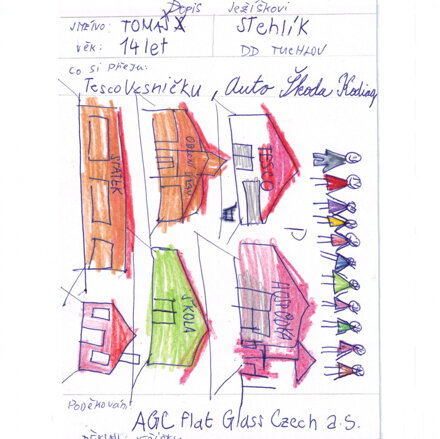 Dopis Ježíškovi
JMÉNO: TOMÁŠ Stehlík
VĚK: 14 let DD TUCHLOV
CO SI PŘEJU:
Tesco Vesničku, Auto Škoda Kodiaq
STATEK
OBECNÍ ÚŘAD
TESCO
P
ŠKOLA
HOSPODA
PODĚKOVÁNÍ
AGC Flat Glass Czech a.s.